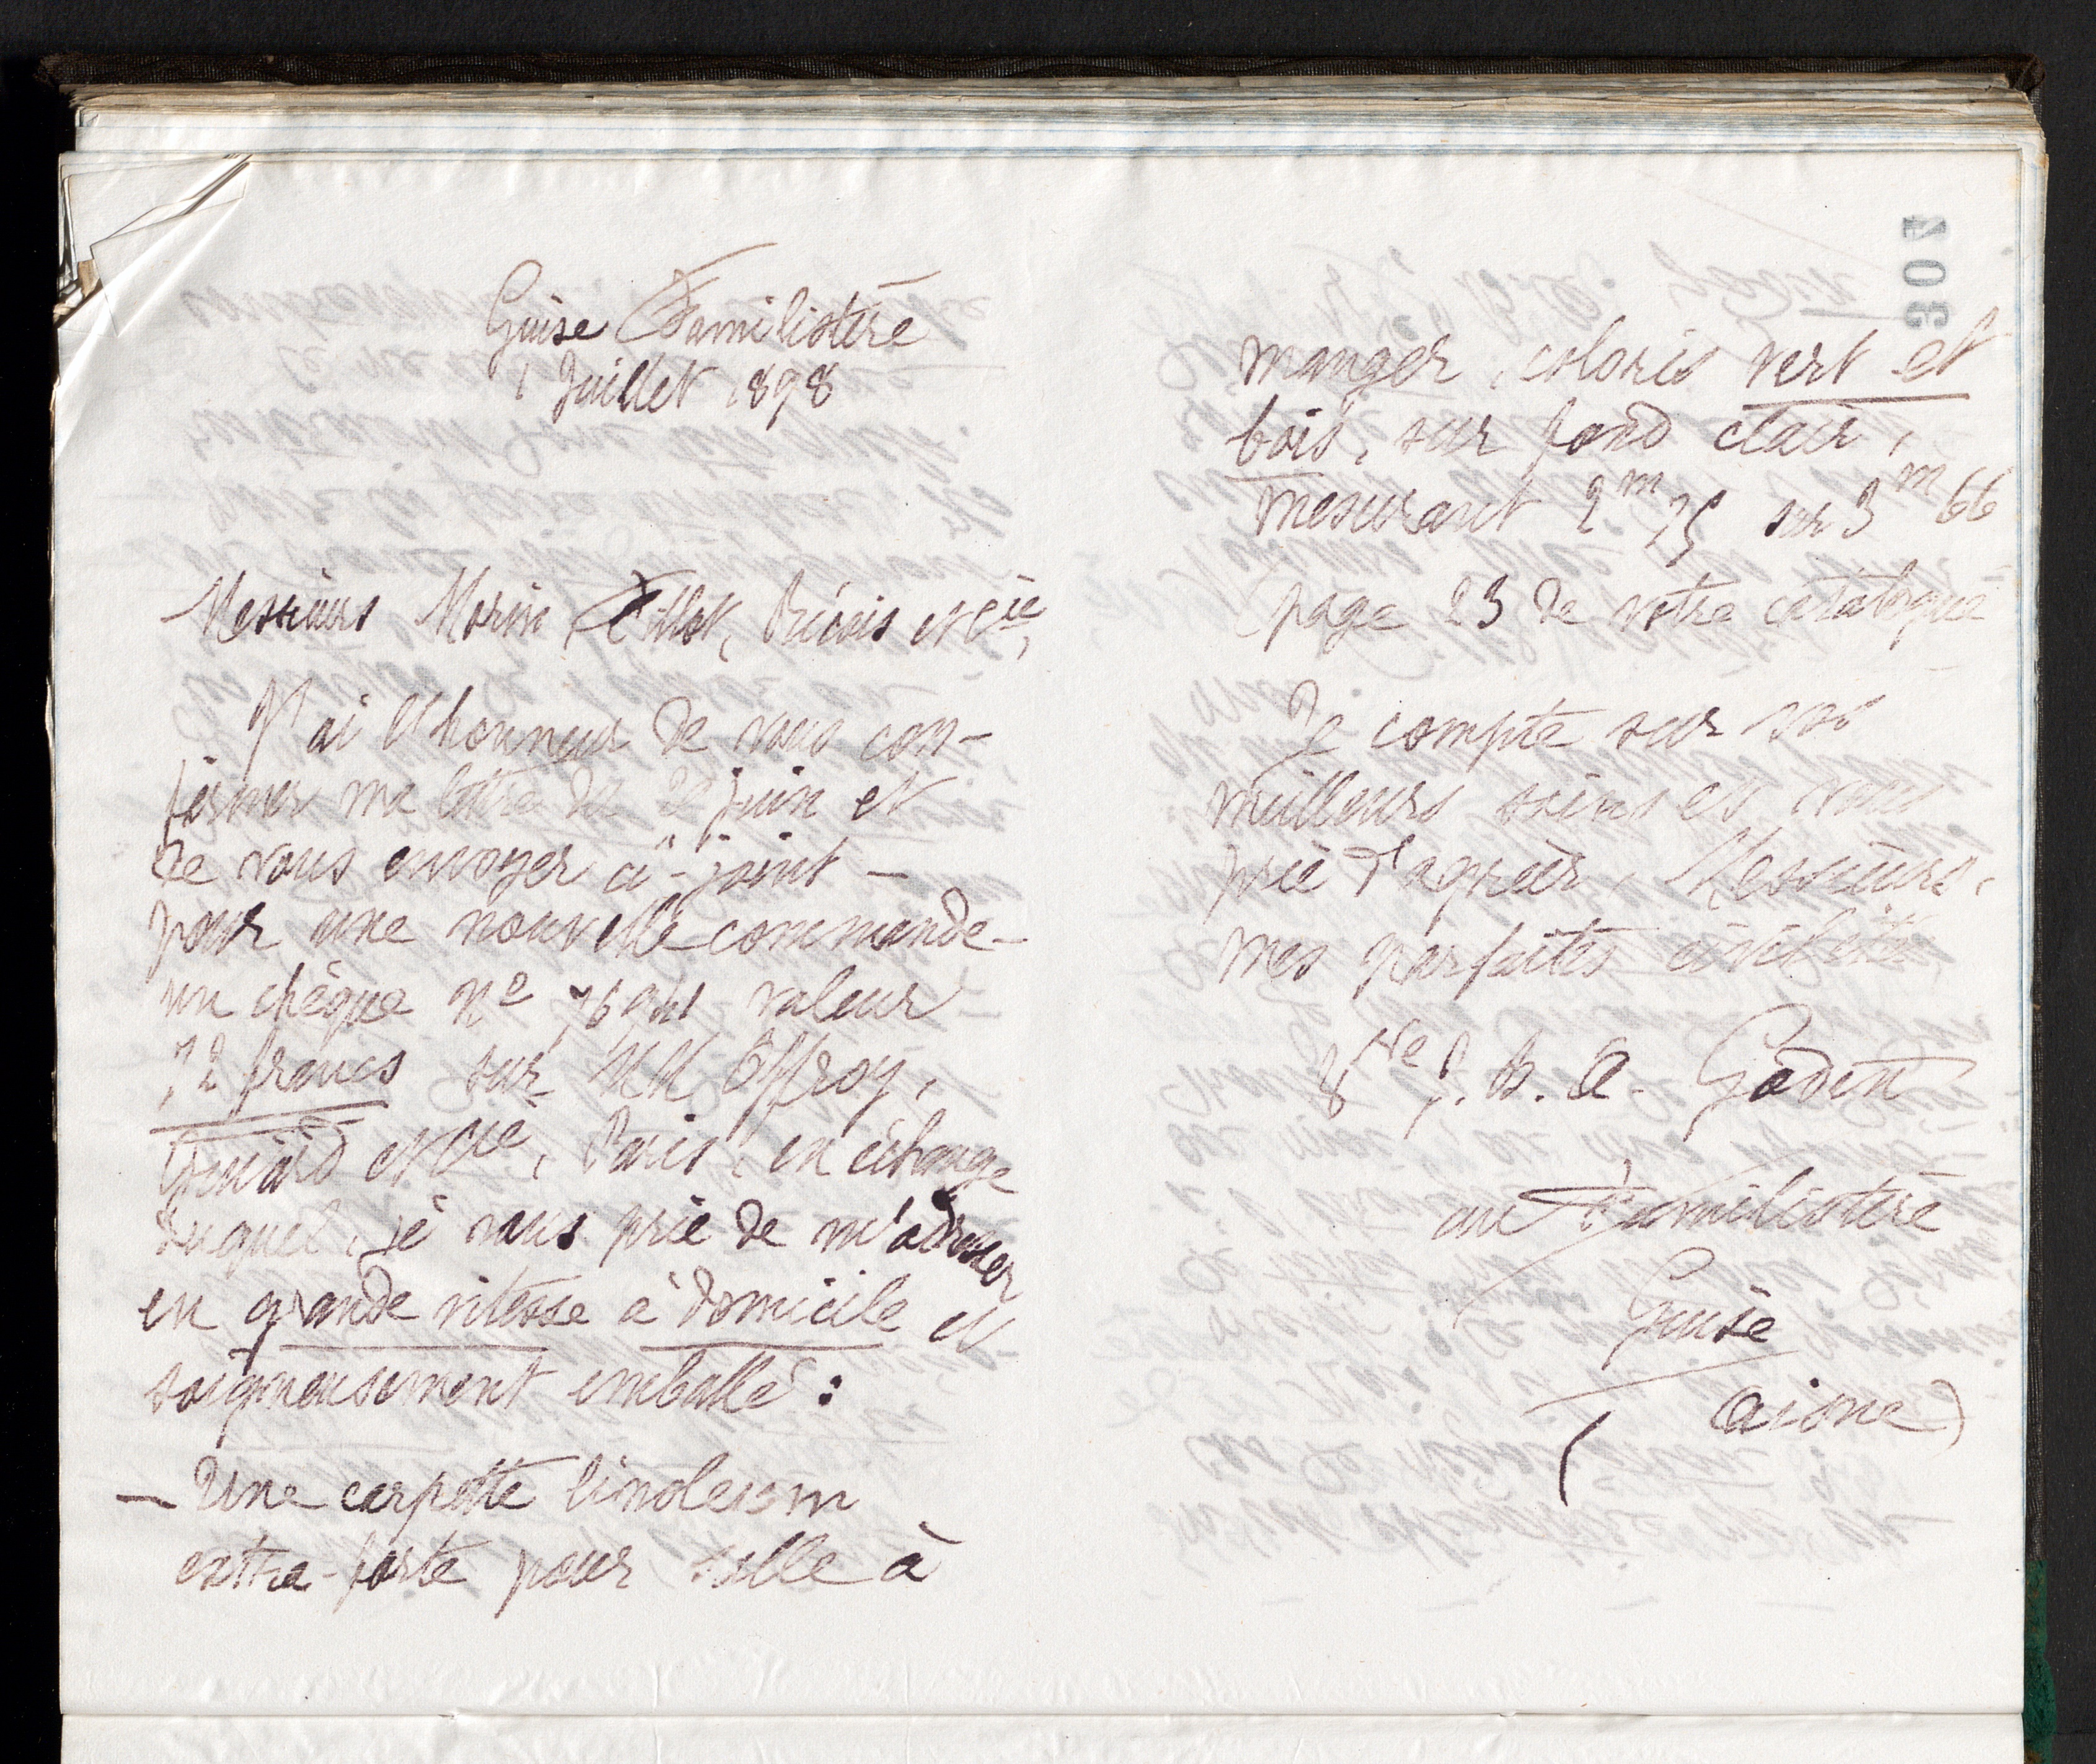 Guise Familistère
1 Juillet 1898
Messieurs Morin Fillot, Ricois et Cie,
J'ai l'honneur de vous con-
firmer ma lettre de juin et
de vous envoyer ci-joint -
pour une nouvelle commande -
un chèque No valeur
72 francs sur MM Offroy,
Guiard et Cie, Paris, en échange
duquel, je vous prie de m'adresser
en grande vitesse à domicile et
soigneusement emballé :
— Une carpette linoleum
extra-forte pour salle à
307
manger, coloris vert et
bois, sur fond clair,
mesurant 2m75 sur 3m66
(page 23 de votre catalogue
Je compte sur vos
meilleurs soins et vous
prie d'agréer, Messieurs,
mes parfaites civilités
Vve J. B. A. Godin
au Familistère
Guise
(Aisne)